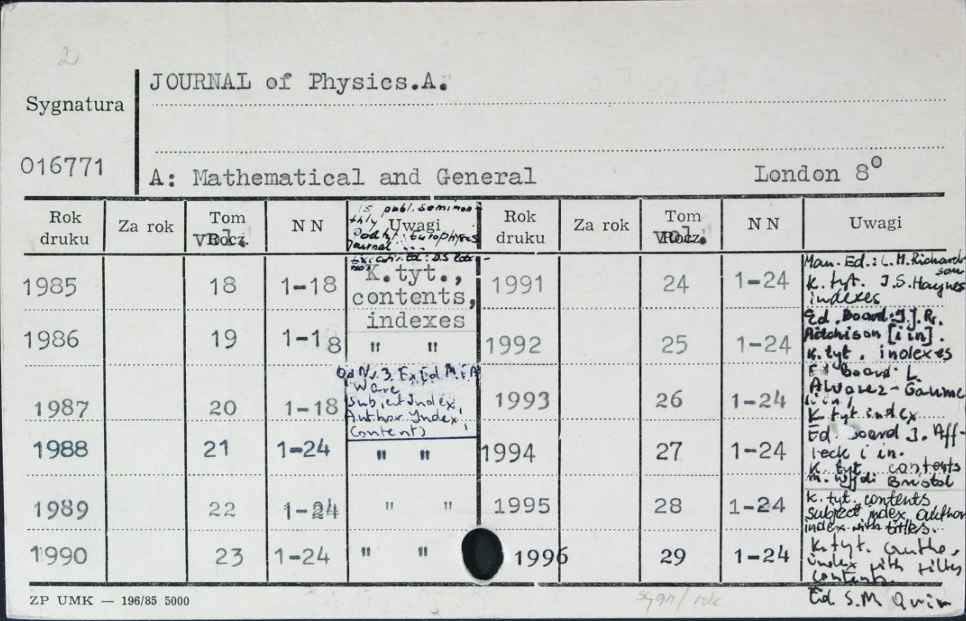 2
JOURNAL of Physics.A.
Sygnatura
016771
A: Mathematical and General London 8°
Rok druku Za rok Tom Vol. N N Uwagi Rok druku Za rok Tom Vol. N N Uwagi
is publ. semimon-
thly
journal
1985 18 1-18 K.tyt., contents, indexes 1991 24 1-24 Man. Ed.: L.M. Richardson K. tyt. J.S. Haynes indexes
1986 19 1-18 " " 1992 25 1-24 Ed. Board: I.J.R. Aitchison [i in]. K. tyt. indexes
1987 20 1-18 Od Nr. 3. Ware Subject Index, Author Index, Contents 1993 26 1-24 Ed board: L. Alvarez-Gaume K tyt index
1988 21 1-24 " " 1994 27 1-24 Ed. board J. Affleck i in. K. tyt. contents Bristol
1989 22 1-24 " " 1995 28 1-24 K. tyt. contents subject index, author index with titles.
1990 23 1-24 " " 1996 29 1-24 K. tyt. index contents.
Ed S.M Quin
ZP UMK — 196/85 5000